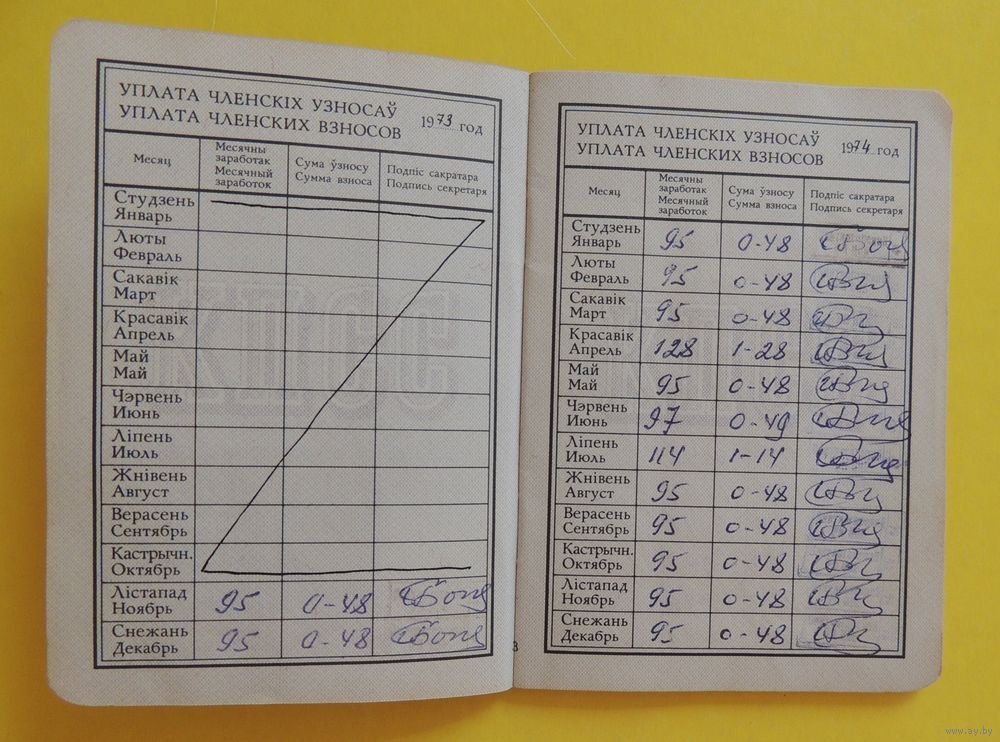 УПЛАТА ЧЛЕНСКІХ УЗНОСАЎ
УПЛАТА ЧЛЕНСКИХ ВЗНОСОВ
1973 год
Месяц
Месячны заработак
Месячный заработок
Сума ўзносу
Сумма взноса
Подпіс сакратара
Подпись секретаря
Студзень
Январь
Люты
Февраль
Сакавік
Март
Красавік
Апрель
Май
Май
Чэрвень
Июнь
Ліпень
Июль
Жнівень
Август
Верасень
Сентябрь
Кастрычн.
Октябрь
Лістапад
Ноябрь 95 0-48
Снежань
Декабрь 95 0-48
КПСС
3
УПЛАТА ЧЛЕНСКІХ УЗНОСАЎ
УПЛАТА ЧЛЕНСКИХ ВЗНОСОВ
1974 год
Месяц
Месячны заработак
Месячный заработок
Сума ўзносу
Сумма взноса
Подпіс сакратара
Подпись секретаря
Студзень
Январь 95 0-48
Люты
Февраль 95 0-48
Сакавік
Март 95 0-48
Красавік
Апрель 128 1-28
Май
Май 95 0-48
Чэрвень
Июнь 97 0-49
Ліпень
Июль 114 1-14
Жнівень
Август 95 0-48
Верасень
Сентябрь 95 0-48
Кастрычн.
Октябрь 95 0-48
Лістапад
Ноябрь 95 0-48
Снежань
Декабрь 95 0-48
www.ay.by